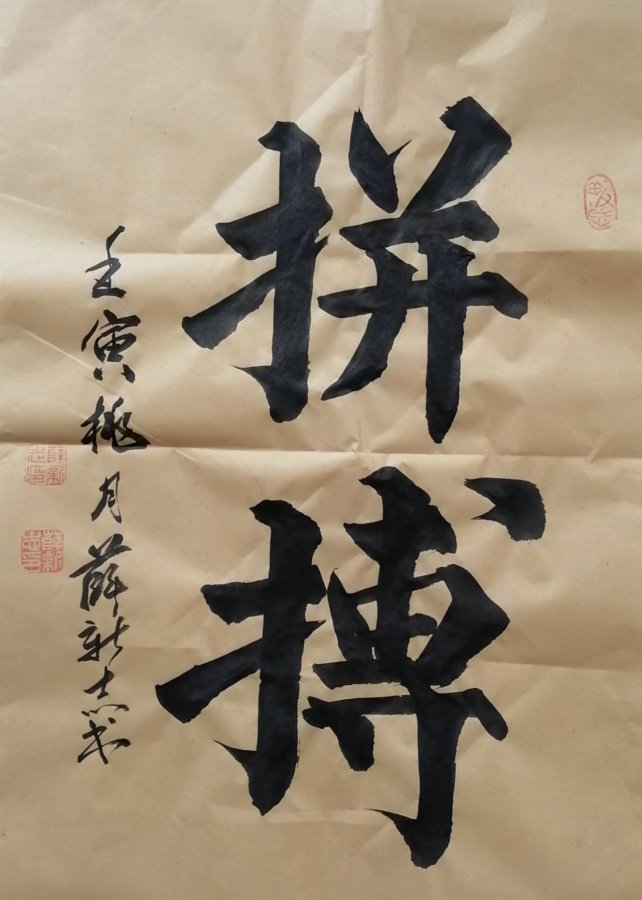 拼搏
壬寅桃月薛新志书